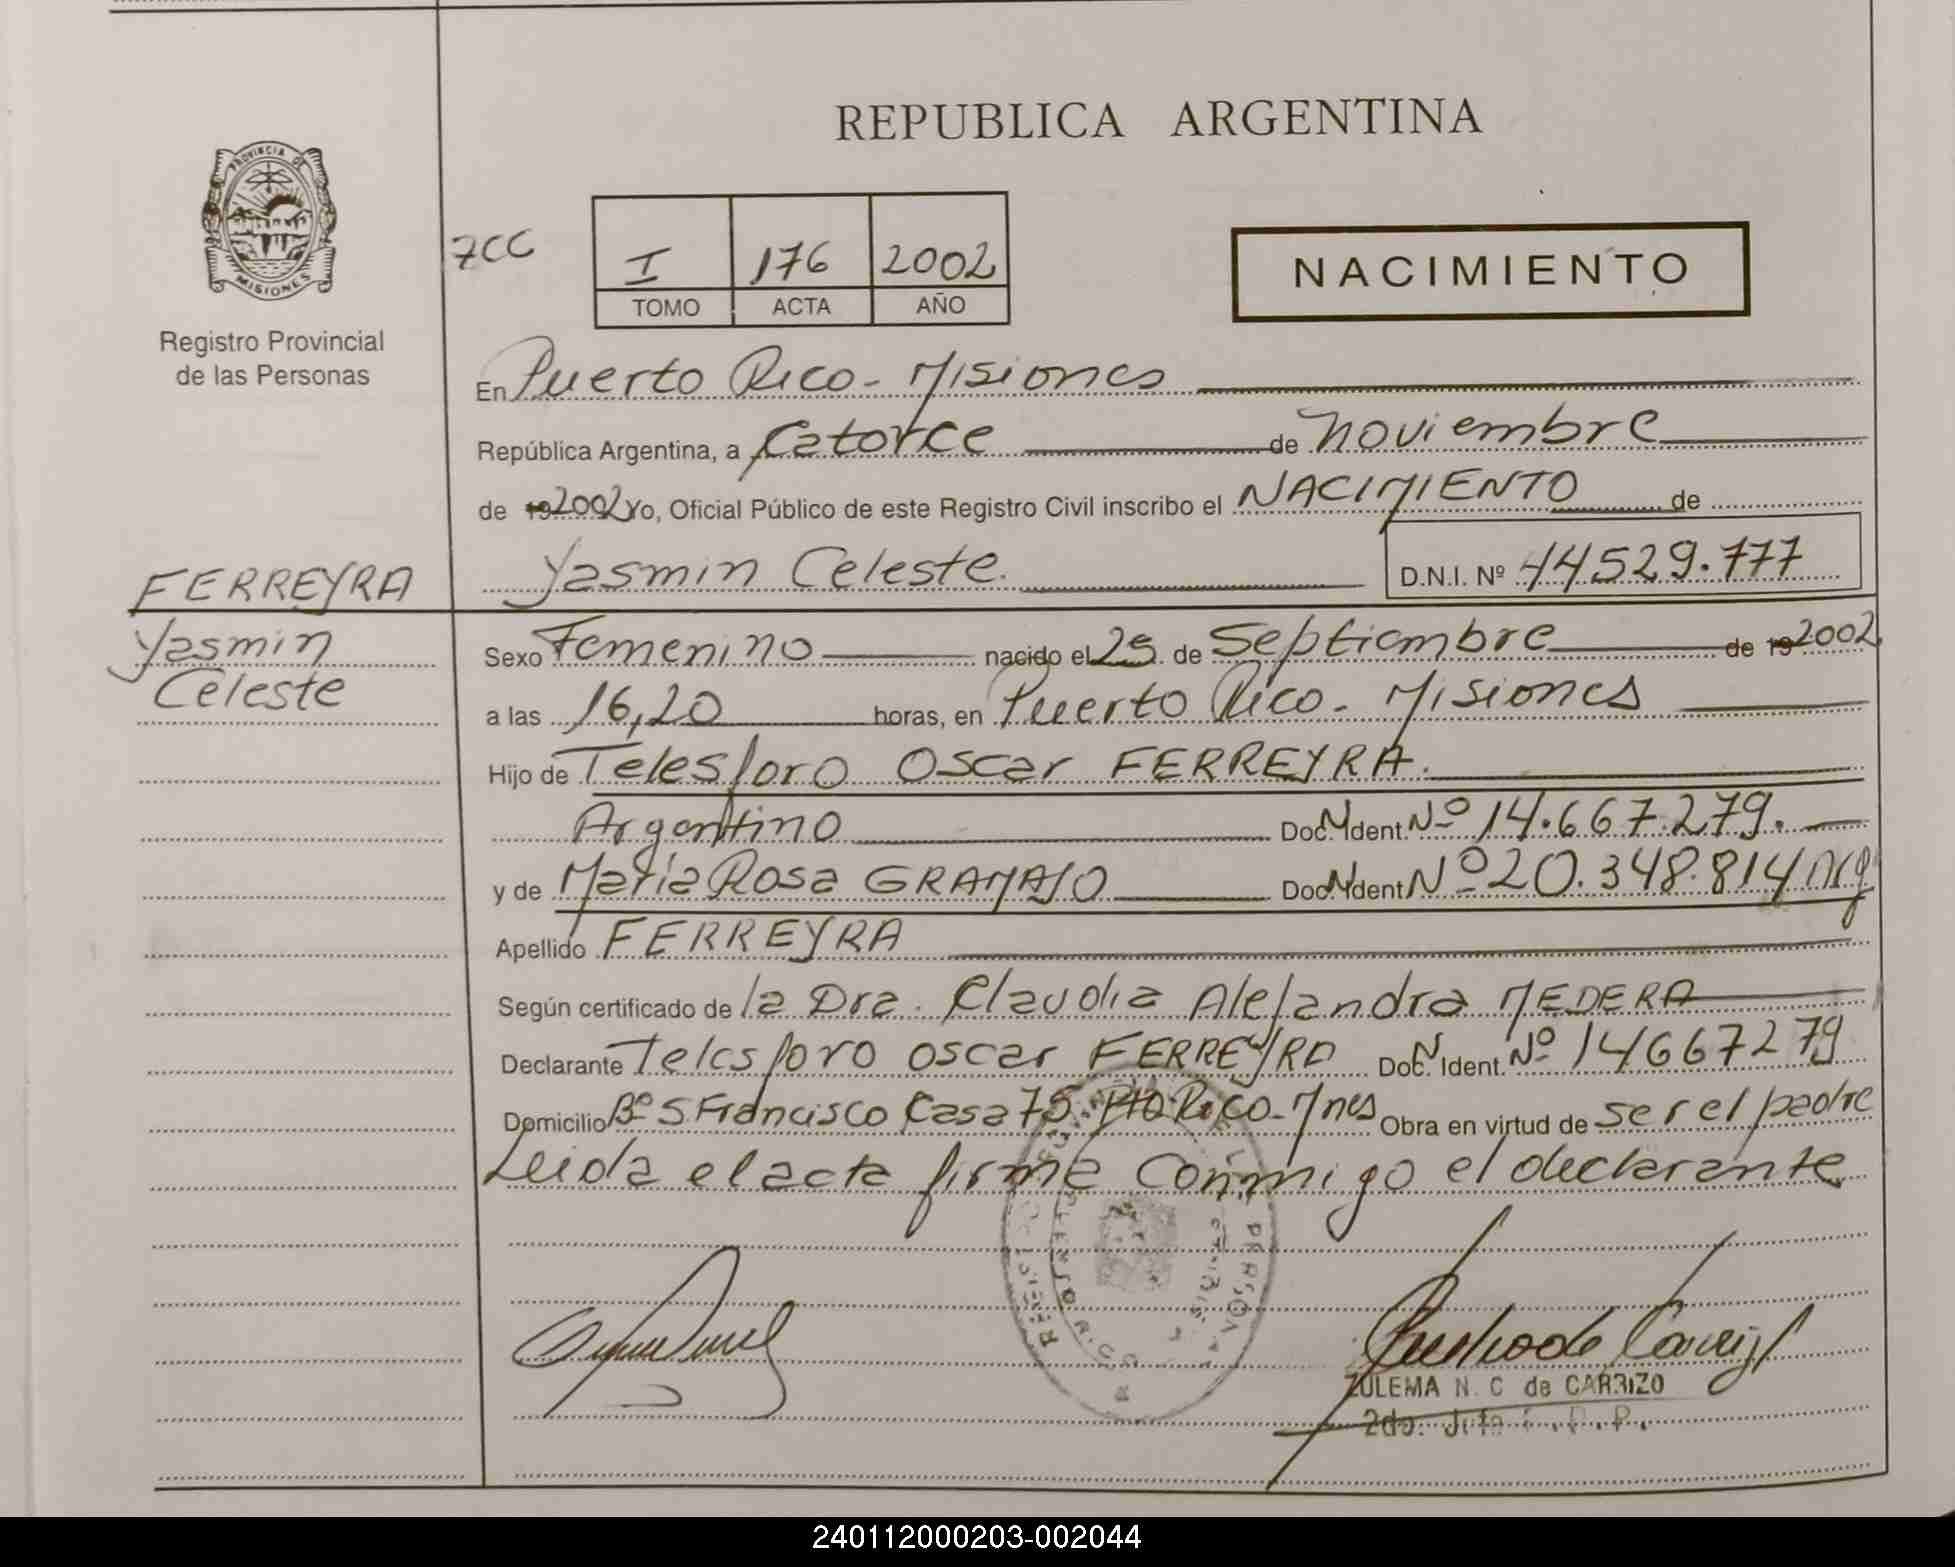 REPUBLICA ARGENTINA
PROVINCIA DE
MISIONES
Registro Provincial
de las Personas
7CC
I 176 2002
TOMO ACTA AÑO
NACIMIENTO
En Puerto Rico - Misiones
República Argentina, a Catorce de noviembre
de 19 2002 Yo, Oficial Público de este Registro Civil inscribo el NACIMIENTO de
Yasmin Celeste. D.N.I. Nº 44529.777
FERREYRA
Yasmin
Celeste
Sexo Femenino nacido el 25 de Septiembre de 19 2002
a las 16,20 horas, en Puerto Rico - Misiones
Hijo de Telesforo Oscar FERREYRA.
Argentino Doc. N Ident. Nº 14.667.279.
y de Maria Rosa GRAMAJO Doc. N Ident Nº 20.348.814 arg
Apellido FERREYRA
Según certificado de la Dra. Claudia Alejandra MEDERA
Declarante Telesforo Oscar FERREYRA Doc. N Ident. Nº 14667279
Domicilio Bº S. Francisco Casa 75 Pto Rico - Mnes Obra en virtud de ser el padre
Leida el acta firma conmigo el declarante
ZULEMA N. C de CARRIZO
2do.
240112000203-002044